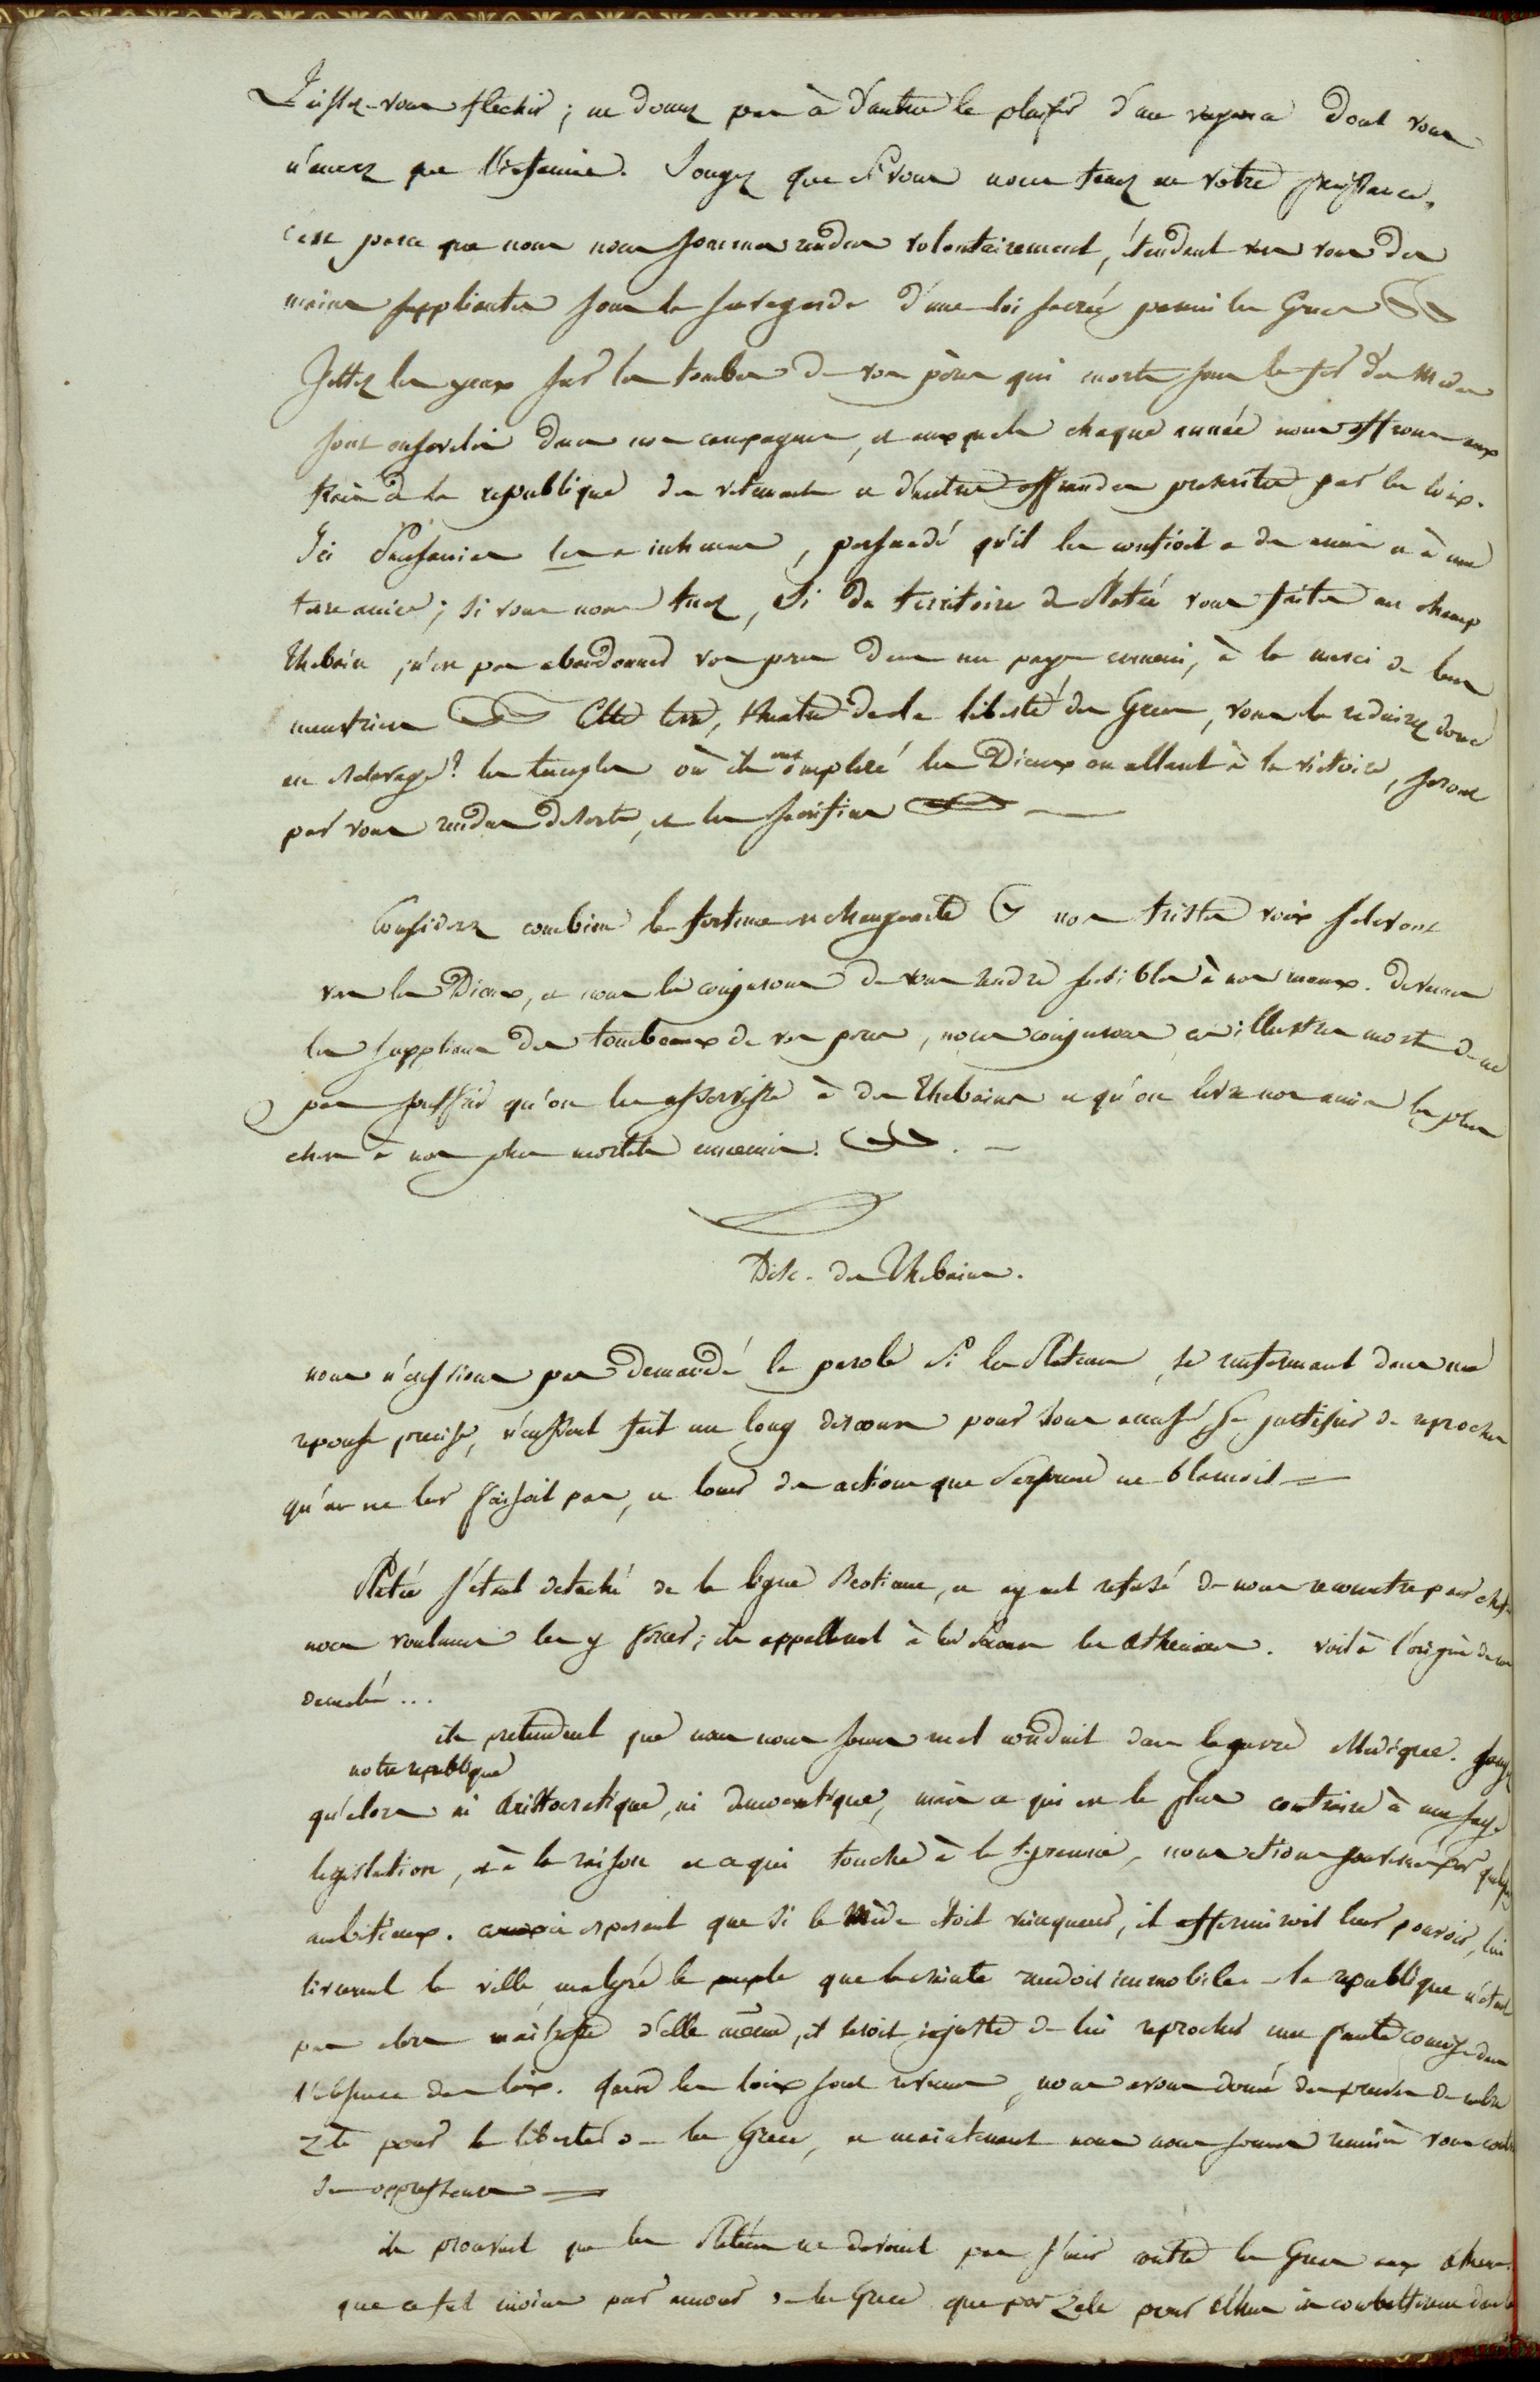 Laissez-vous flechir ; ne donnez pas à d'autres le plaisir d'une vengeance dont vous
n'aurez que l'infamie. Songez que si vous nous tenez en votre puissance,
c'est parce que nous nous sommes rendus volontairement, étendant vers vous des
mains suppliantes sous la sauvegarde d'une loi sacrée parmi les Grecs
Jettez les yeux sur les tombes de vos pères qui morts sous le fer des Medes
sont ensevelis dans nos campagnes, et auxquels chaque année nous offrons aux
frais de la republique des vetements et d'autres offrandes prescrites par les loix.
Ici Pausanias les a inhumés, persuadé qu'il les confioit a des amis et à une
terre amie ; si vous nous tuez, si du territoire de Platée vous faites un champ
Thebain, n'est pas abandonner vos peres dans un pays ennemi, à la merci de leurs
meurtriers Cette terre, theatre de la liberté des Grecs, vous la reduirez donc
en esclavage ? les temples où ils ont imploré les Dieux en allant à la victoire, seront
par vous rendus deserts, et les sacrifices
Considerez combien la fortune est changeante nos tristes voix s'elevent
vers les Dieux, et nous les conjurons de vous rendre sensibles à nos maux. devenus
les supplians des tombeaux de vos peres, nous conjurons ces illustres morts de ne
pas souffrir qu'on les asservisse à des Thebains et qu'on livre nos amis les plus
chers à nos plus mortels ennemis.
Disc. des Thebains.
nous n'eussions pas demandé la parole si les Platéens, se renfermant dans une
reponse precise, n'eussent fait un long discours pour nous accuser, se justifier de reproches
qu'on ne leur faisoit pas, et louer des actions que personne ne blamoit
Platée s'étant detaché de la ligue Beotienne, et ayant refusé de nous reconnaitre pour chefs
nous voulumes les y forcer ; ils appellerent à leur secours les Atheniens. voilà l'origine de nos
demelés ...
ils pretendent que nous nous sommes mal conduit dans la guerre Medique. songez
notre republique
qu'alors ni Aristocratique, ni democratique, mais ce qui est le plus contraire à une sage
legislation, et à la raison et ce qui touche à la tyrannie, nous etions gouvernés par quelques
ambitieux. ceux-ci esperant que si le Mède étoit vainqueur, il affermiroit leur pouvoir, lui
livrerent la ville malgré le peuple que la crainte rendoit immobile. la republique n'étant
pas alors maitresse d'elle même, il seroit injuste de lui reprocher une faute comise dans
l'absence des loix. quand les loix sont revenues, nous avons donné des preuves de notre
zèle pour la liberté de la Grece, et maintenant nous nous sommes reunis à vous contre
des oppresseurs
ils prouvent que les Platéens ne devoient pas s'unir contre les Grecs aux Athen.
que ce fut moins par amour de la Grece que par zele pour Athenes